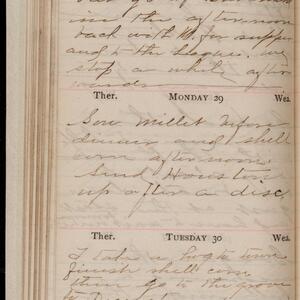 in the afternoon
back with M for supper
and to the league. we
stop a while after
wards
Ther. MONDAY 29 Wea.
Sow Millet before
dinner and shell
corn afternoon.
Send Houston
up after a disc
Ther. TUESDAY 30 Wea.
I take a hog to town
finish shell corn
then go to the grove